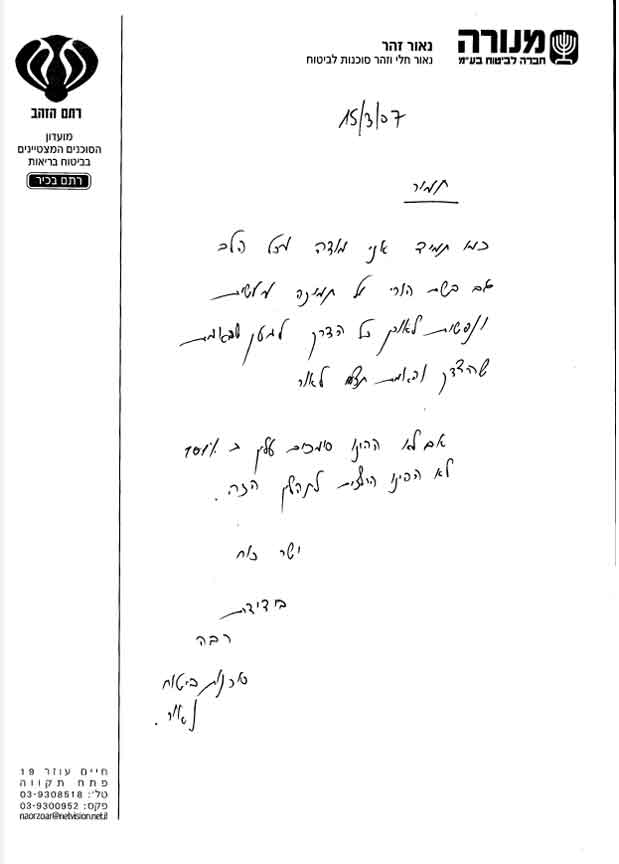 מנורה
חברה לביטוח בע"מ
נאור זהר
נאור חלי וזהר סוכנות לביטוח
רתם הזהב
מועדון
הסוכנים המצטיינים
בביטוח בריאות
רתם בכיר
15/3/07
תמיר
כמו תמיד אני מודה מכל הלב
גם בשם הורי על תמיכה מעשית
ונפשית לאורך כל הדרך
שהצדק והאמת לאור
אם לא היינו סומכים עליך ב 101%
לא היינו לתהליך הזה.
ישר כוח
בידידות
רבה
סוכנות ביטוח
נאור.
חיים עוזר 19
פתח תקווה
טל': 03-9308518
פקס: 03-9300952
naorzoar@netvision.net.il